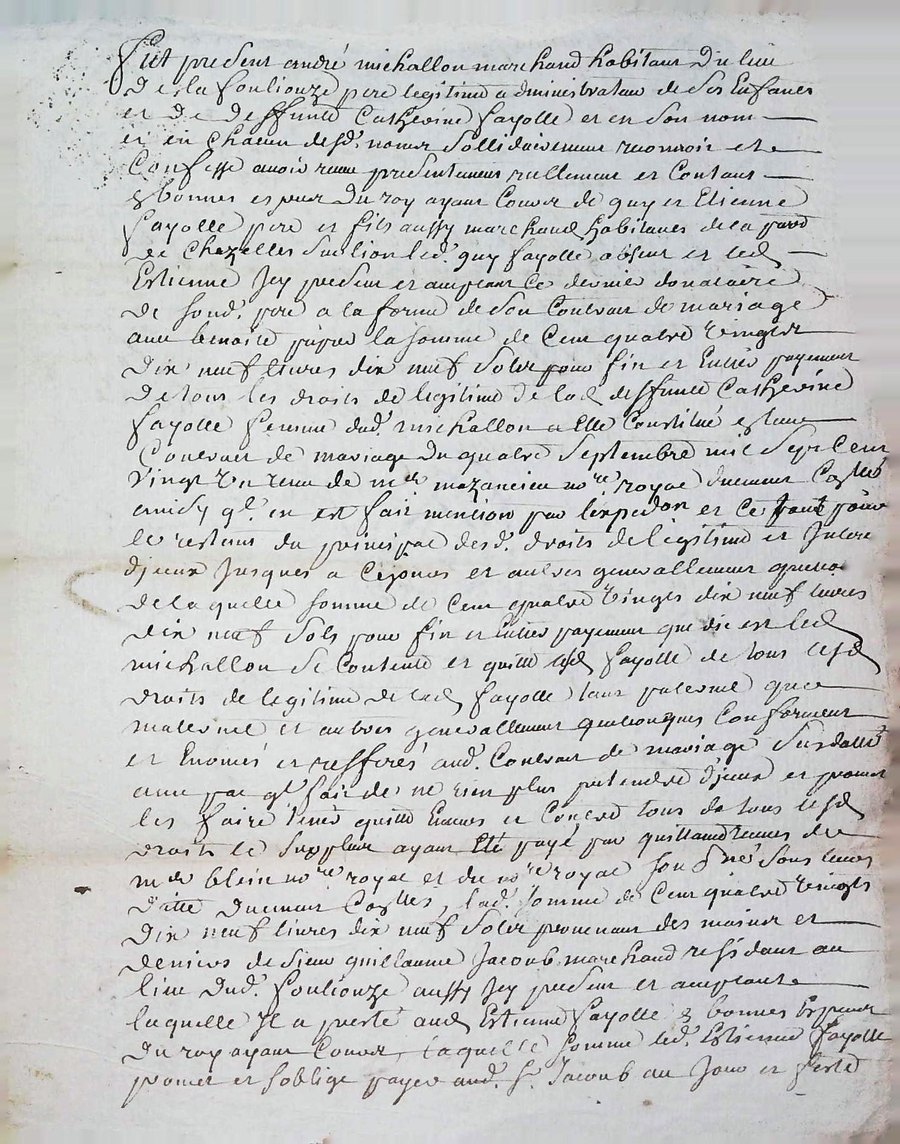 fut present andré michallon marchand habitant du lieu
de la fouliouze pere legitime administrateur de ses Enfants
et de deffunte Catherine fayolle et en son nom
et en chacun desd. noms sollidairement reconnoit et
Confesse avoir reçu presentement reellement et Contant
Ez bonnes especes du roy ayant Cours de guy et Etienne
fayolle pere et fils aussy marchand habitants de la parr
de Chazelles sur lion led. guy fayolle absent et led
Estienne Icy present et acceptant ce dernier donataire
de sond. pere a la forme de son Contrat de mariage
avec benoite la somme de Cent quatre vingts
dix neuf livres dix neuf sols pour fin et Entier payement
de tous les droits de legitime de lad deffunte Catherine
fayolle femme dud. michallon a elle Constitué
Contrat de mariage du quatre septembre mil sept Cent
vingt un reçu de me mazancieu nore royal duement Collé
ainsy ql. en est fait mention par lexpedon et ce pour
le restant du principal desd. droits de legitime et Interes
djceux Jusques a Cejours et autres generallement
de la quelle somme de Cent quatre vingts dix neuf livres
dix neuf sols pour fin et Entier payement que dit est led
michallon se Contente et quitte lesd fayolle de tous lesd
droits de legitime de lad fayolle tant paternel que
maternel et autres generallement quelconques Conformement
et Enoncés et refferés aud. Contrat de mariage susdatté
avec pac ql. fait de ne rien plus pretendre djceux et promet
les faire tenir quitte Envers et Contre tous de tous lesd
droits le surplus ayant Eté payé par quittance reçues de
me blein nore royal et du nore royal soussigné sous leurs
datte duement Collés, lad. somme de Cent quatre vingts
dix neuf livres dix neuf sols provenant des mains et
deniers de sieur guillaume Jacoub marchand residant au
lieu dud. fouliouze aussy Icy present et acceptant
laquelle Il a preté aud Estienne fayolle Ez bonnes Especes
du roy ayant Cours, laquelle somme led. Estienne fayolle
promet et soblige payer aud. sr. Jacoub au Jour et feste